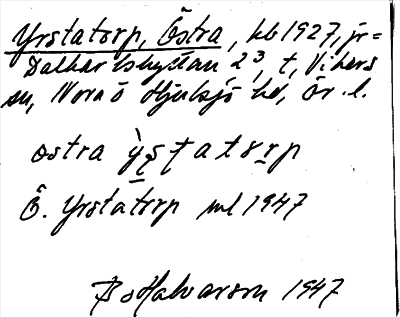 Yrstatorp, Östra, hb 1927, jr=
Dalkarlshyttan 2³, t, Vikers
sn, Nora o Hjulsjö hd, Ör. l.
östra ỳṣṭatorp
Ö. Yrstatorp ml 1947
B o Halvarson 1947